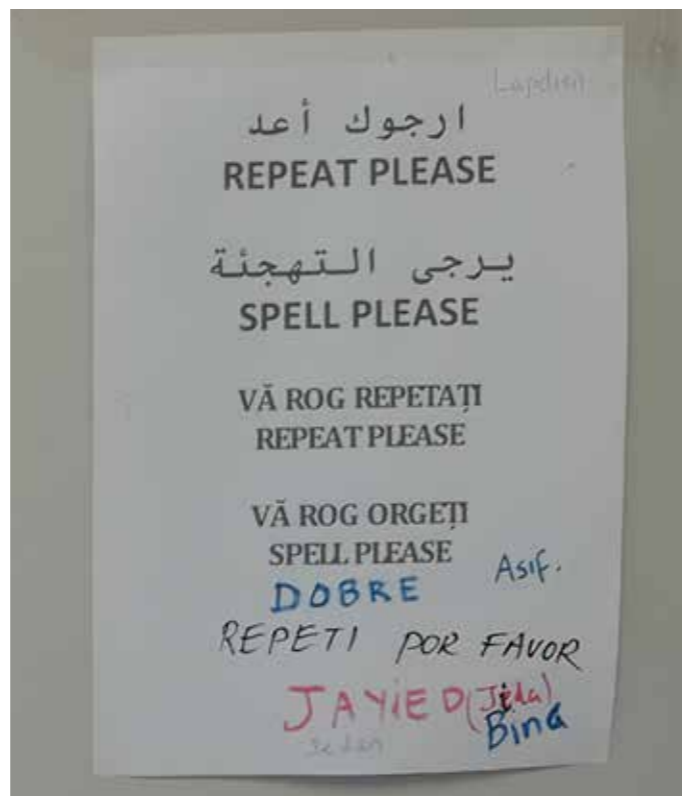 ارجوك أعد
REPEAT PLEASE
يرجى التهجئة
SPELL PLEASE
VĂ ROG REPETAȚI
REPEAT PLEASE
VĂ ROG ORGEȚI
SPELL PLEASE
DOBRE
Asif.
REPETI POR FAVOR
JAYiED (Jida)
Bina